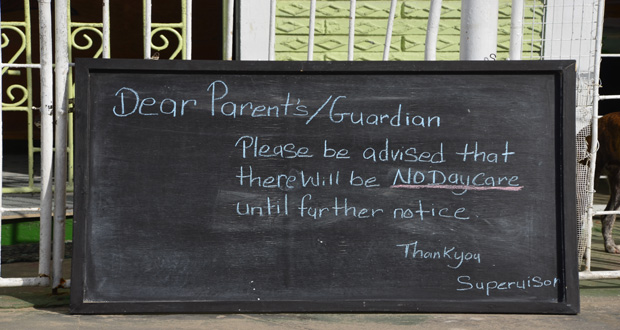 Dear Parent's/Guardian
Please be advised that
there will be NO Daycare
until further notice.
Thank you
Supervisor